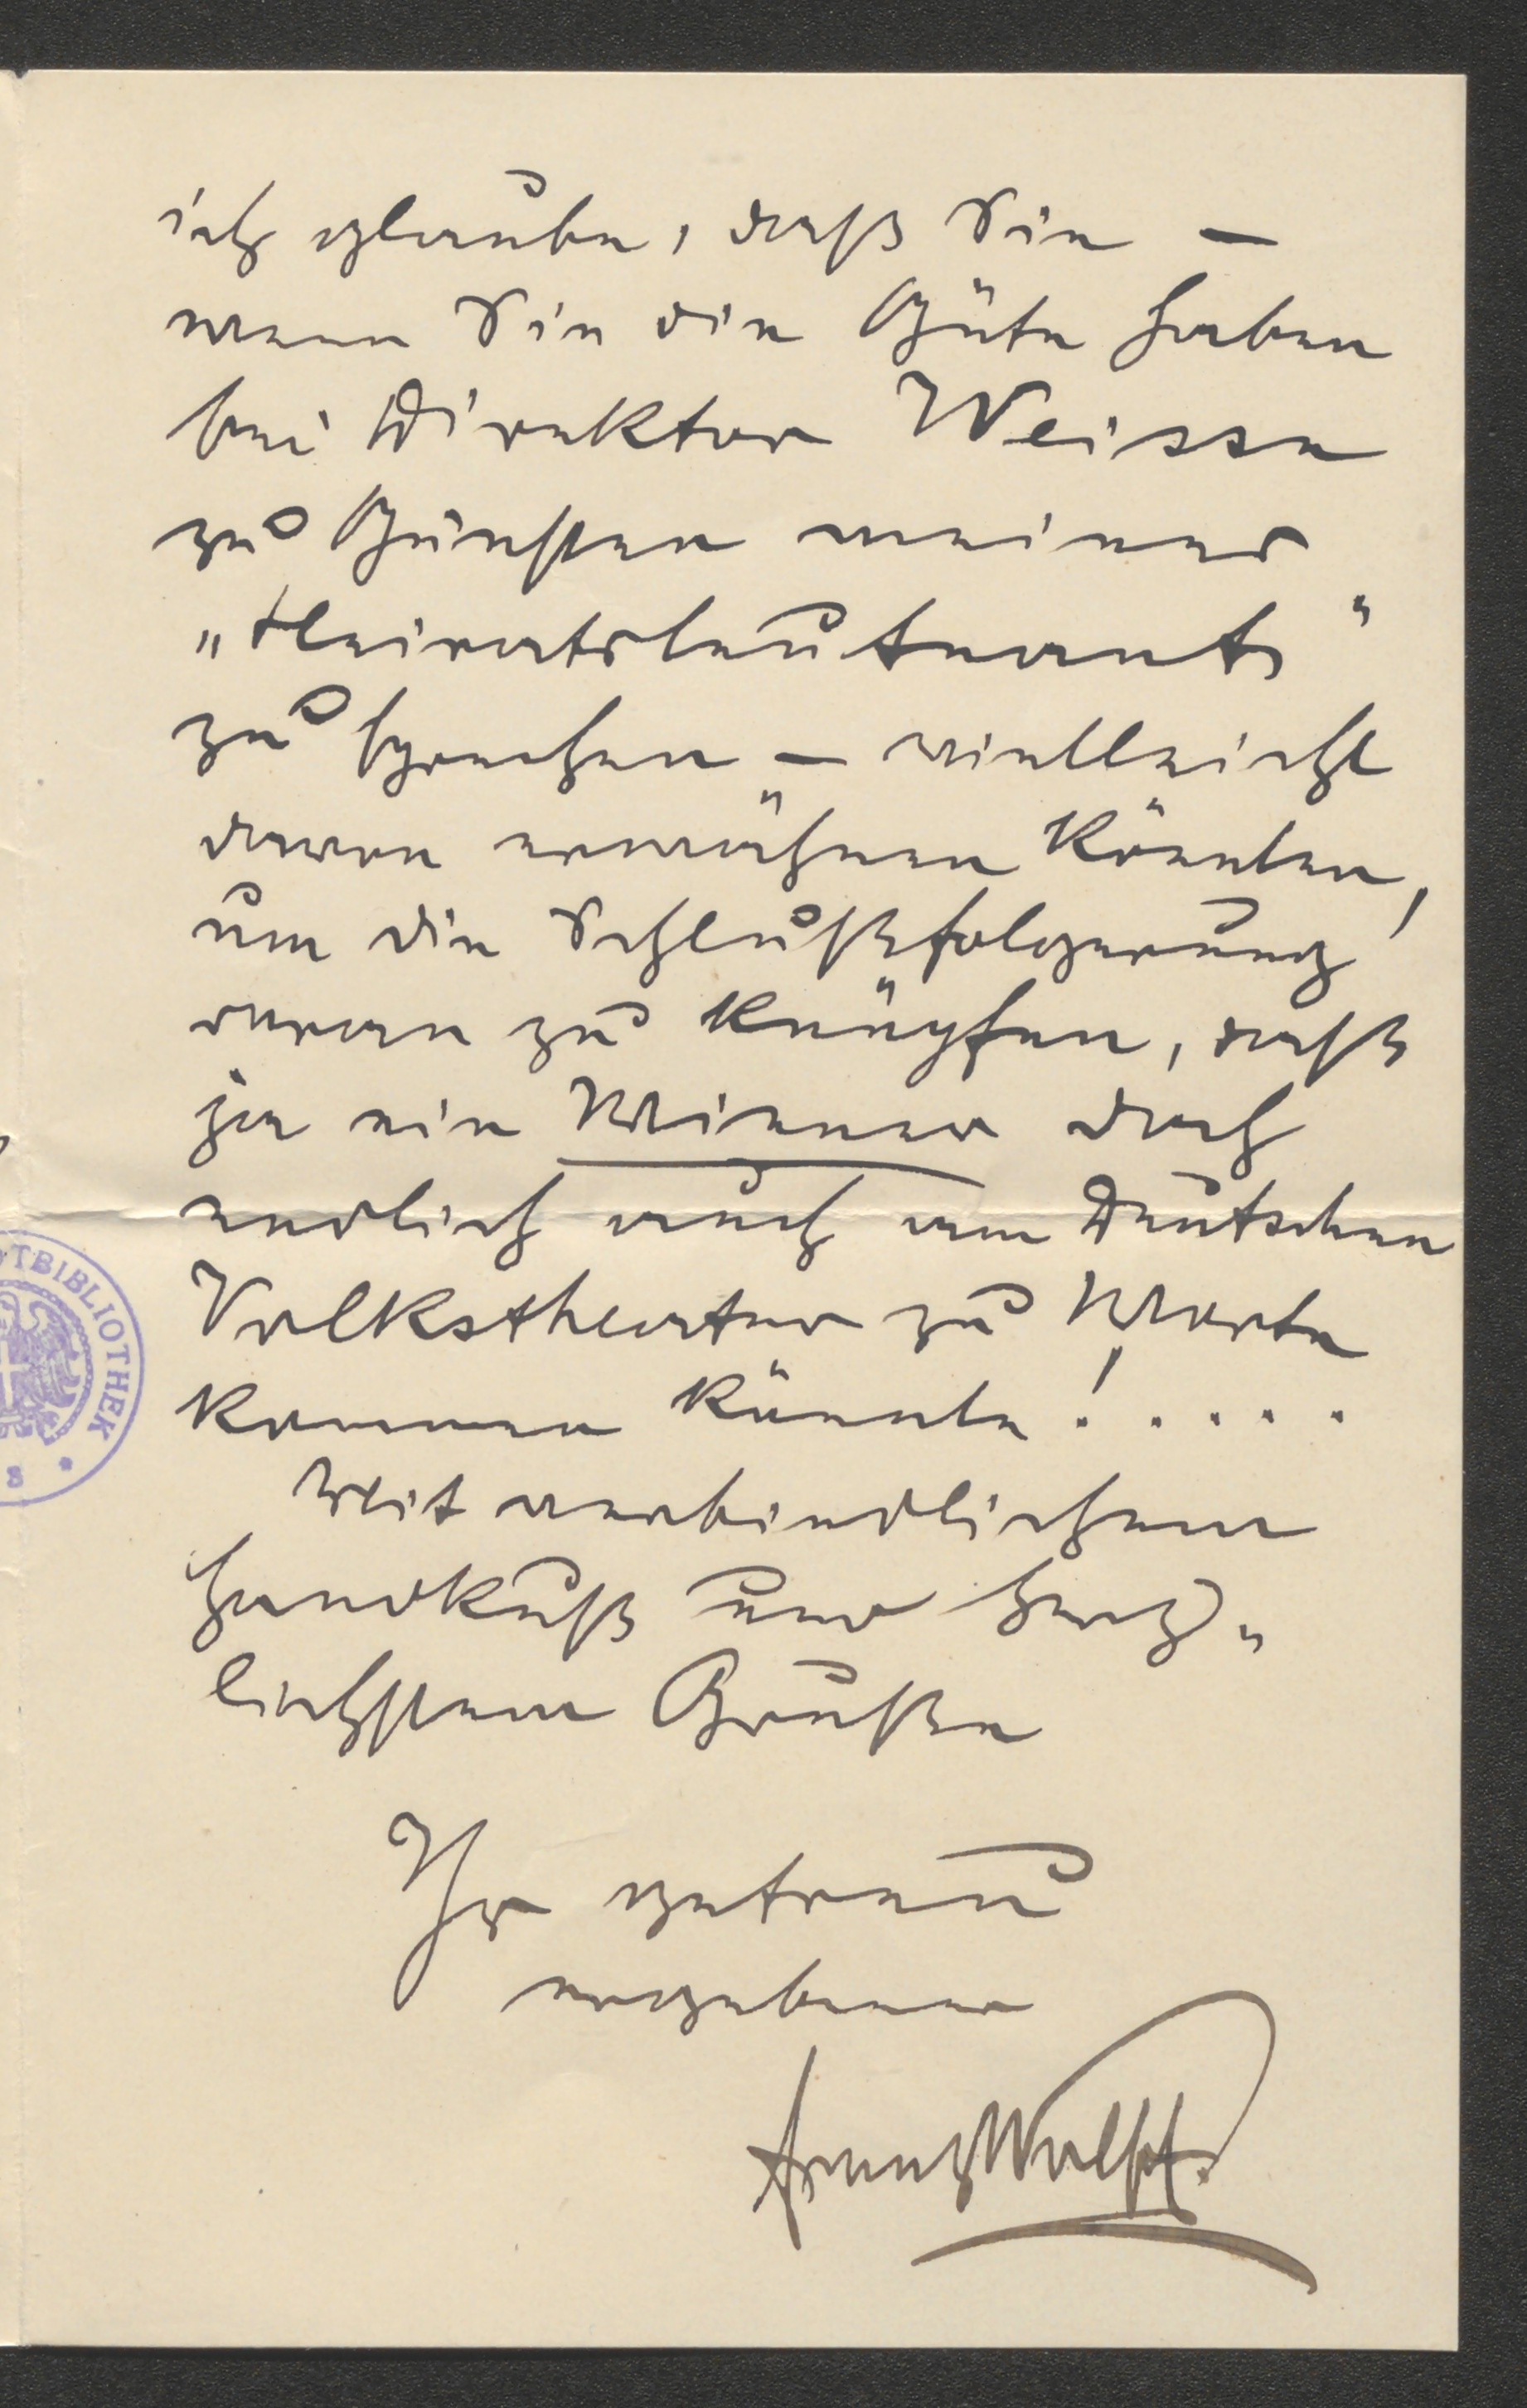 ich glaube, daß Sie –
wenn Sie die Güte haben
bei Direktor Weisse
zu Gunsten meines
„Heiratsleutnants"
zu sprechen – vielleicht
davon erwähnen könnten,
um die Schlußfolgerung
daran zu knüpfen, daß
ja ein Wiener doch
endlich auch am Deutschen
Volkstheater zu Worte
kommen könnte! . . . .
Mit verbindlichem
Handkuß und herz„
lichstem Gruße
Ihr getreu
ergebener
Franz Wolff.
TBIBLIOTHEK